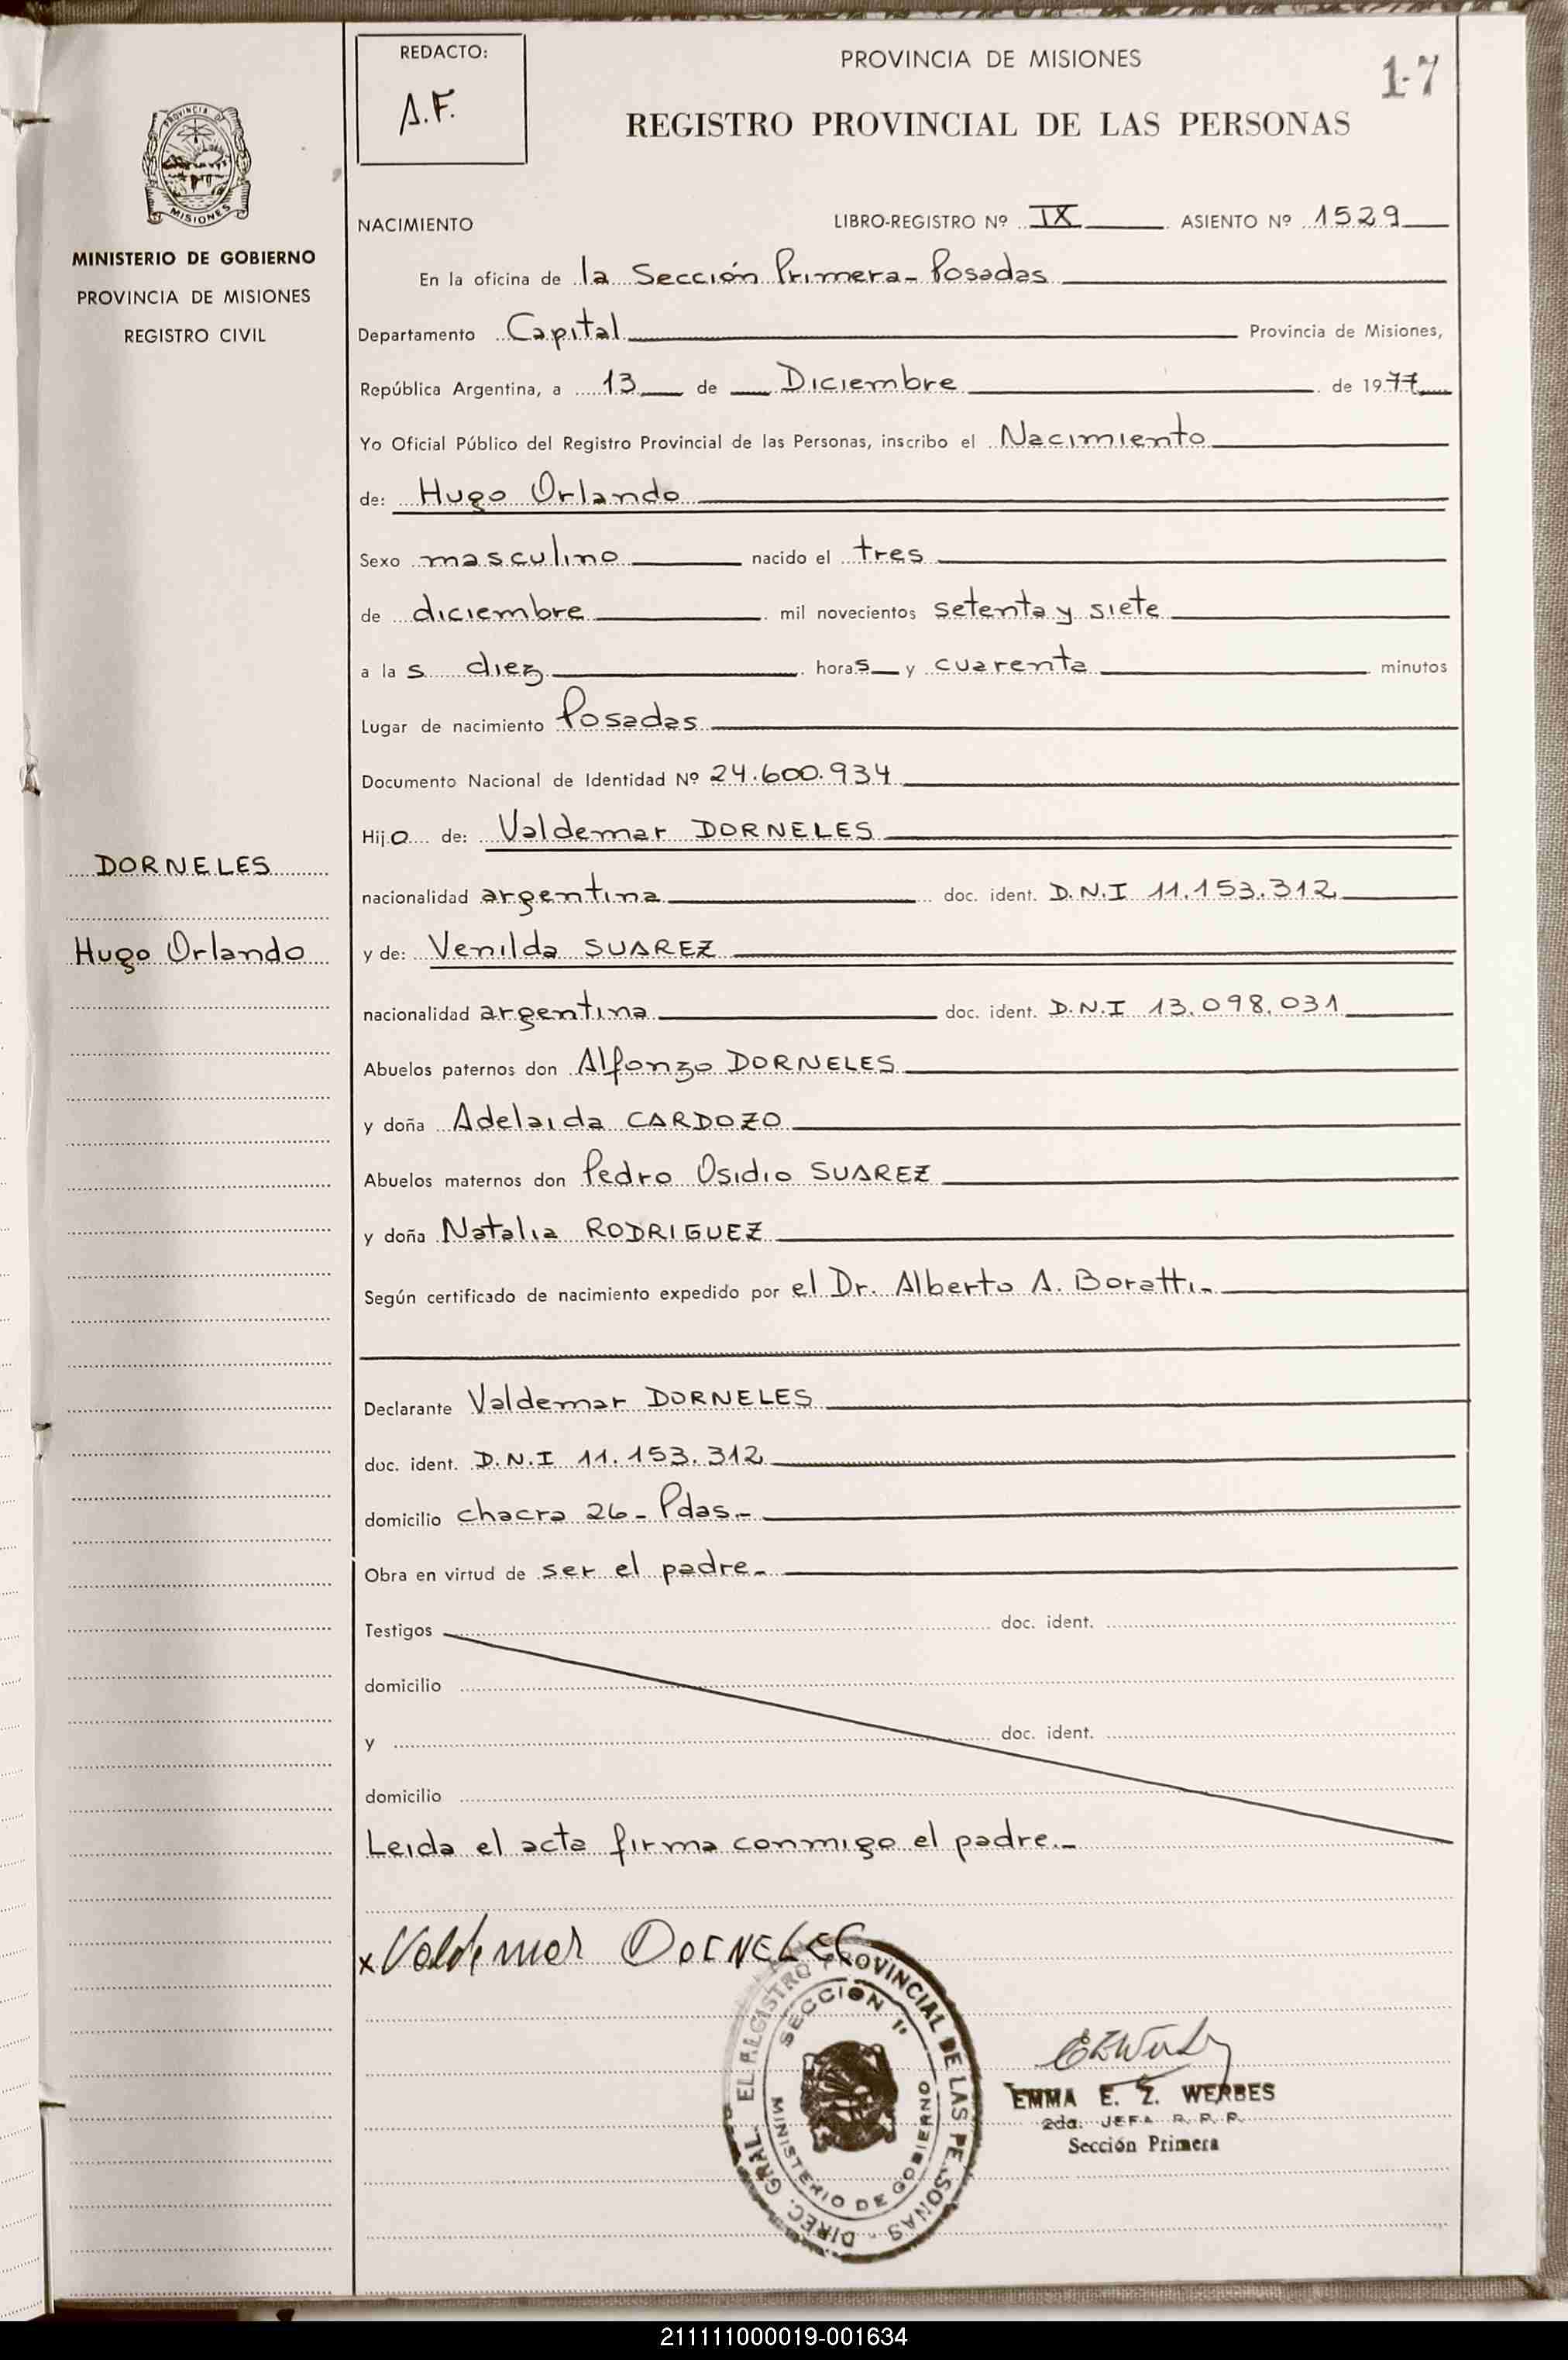 REDACTO:
A.F.
PROVINCIA DE MISIONES
17
REGISTRO PROVINCIAL DE LAS PERSONAS
PROVINCIA DE
MISIONES
MINISTERIO DE GOBIERNO
PROVINCIA DE MISIONES
REGISTRO CIVIL
DORNELES
Hugo Orlando
NACIMIENTO LIBRO-REGISTRO Nº IX ASIENTO Nº 1529
En la oficina de la Sección Primera - Posadas
Departamento Capital Provincia de Misiones,
República Argentina, a 13 de Diciembre de 1977
Yo Oficial Público del Registro Provincial de las Personas, inscribo el Nacimiento
de: Hugo Orlando
Sexo masculino nacido el tres
de diciembre mil novecientos setenta y siete
a las diez horas y cuarenta minutos
Lugar de nacimiento Posadas
Documento Nacional de Identidad Nº 24.600.934
Hijo de: Valdemar DORNELES
nacionalidad argentina doc. ident. D.N.I 11.153.312
y de: Venilda SUAREZ
nacionalidad argentina doc. ident. D.N.I 13.098.031
Abuelos paternos don Alfonzo DORNELES
y doña Adelaida CARDOZO
Abuelos maternos don Pedro Osidio SUAREZ
y doña Natalia RODRIGUEZ
Según certificado de nacimiento expedido por el Dr. Alberto A. Boratti.-
Declarante Valdemar DORNELES
doc. ident. D.N.I 11.153.312
domicilio chacra 26 - Pdas.-
Obra en virtud de ser el padre.-
Testigos doc. ident.
domicilio
y doc. ident.
domicilio
Leida el acta firma conmigo el padre.-
x Valdemar DORNELES
DIREC. GRAL. EL REGISTRO PROVINCIAL DE LAS PERSONAS -
SECCION 1ª
MINISTERIO DE GOBIERNO
EMMA E. Z. WERBES
2da. JEFA R. P. P.
Sección Primera
211111000019-001634